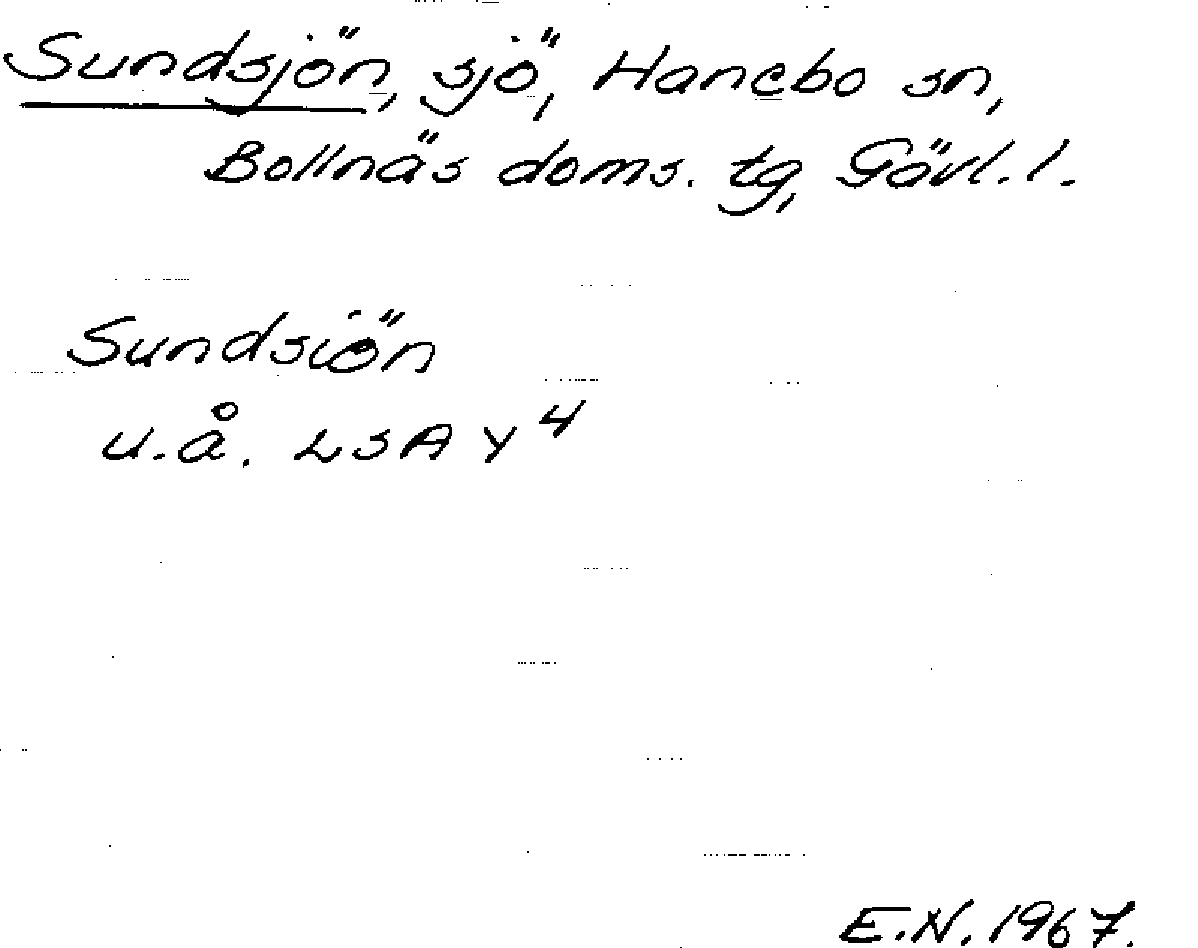 Sundsjön, sjö, Hanebo sn,
Bollnäs doms. tg, Gävl. l.
Sundsiön
u.å. LSA Y⁴
E.N. 1967.